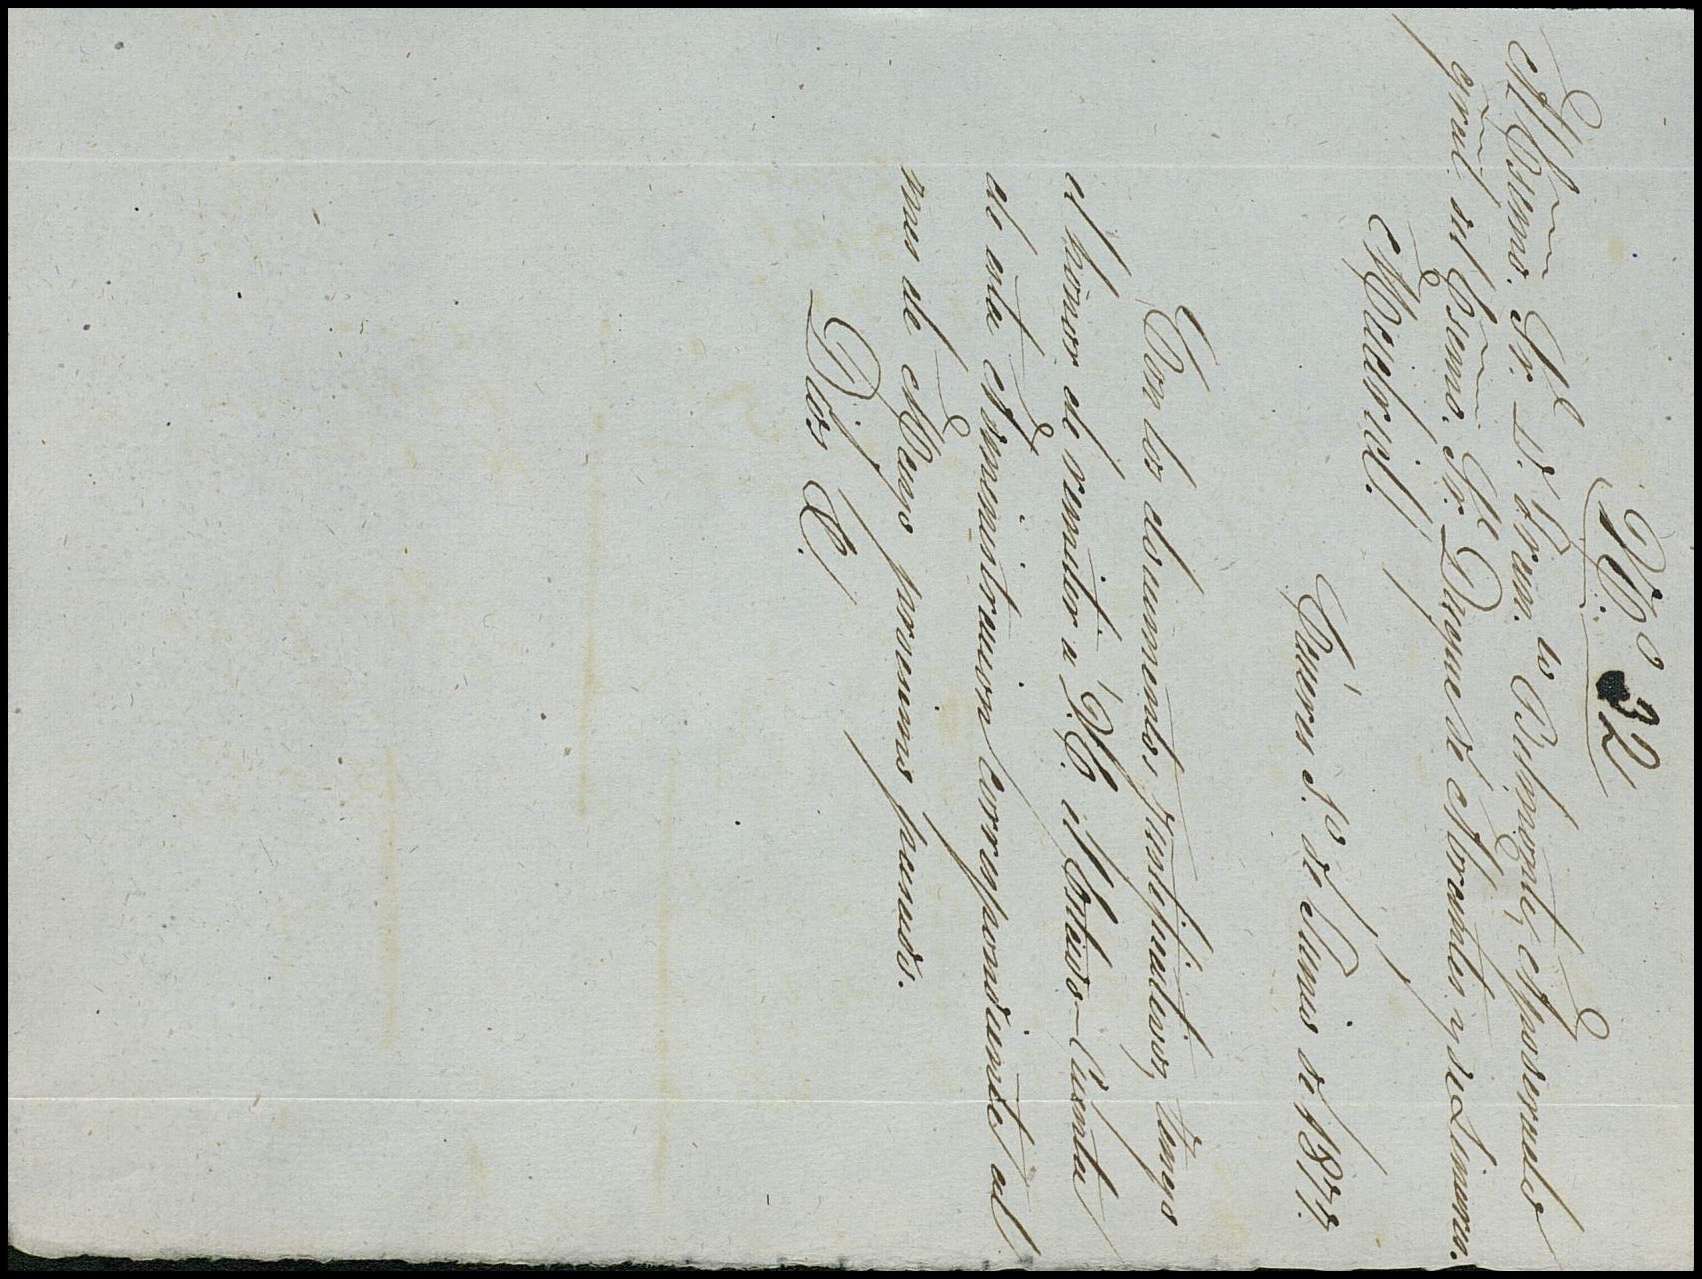 N.º 32
Al Excmo. Sr. D. Fran.co Belmonte, Apoderado
gral. del Excmo. Sr. Duque de Abrantes y de Linares.
Madrid.
Cáceres 1.º de Junio de 1877.
Con los documentos justificativos, tengo
el honor de remitir a V.E. el Estado-Cuenta
de esta Administracion correspondiente al
mes de Mayo procsimo pasado.
Dios &.